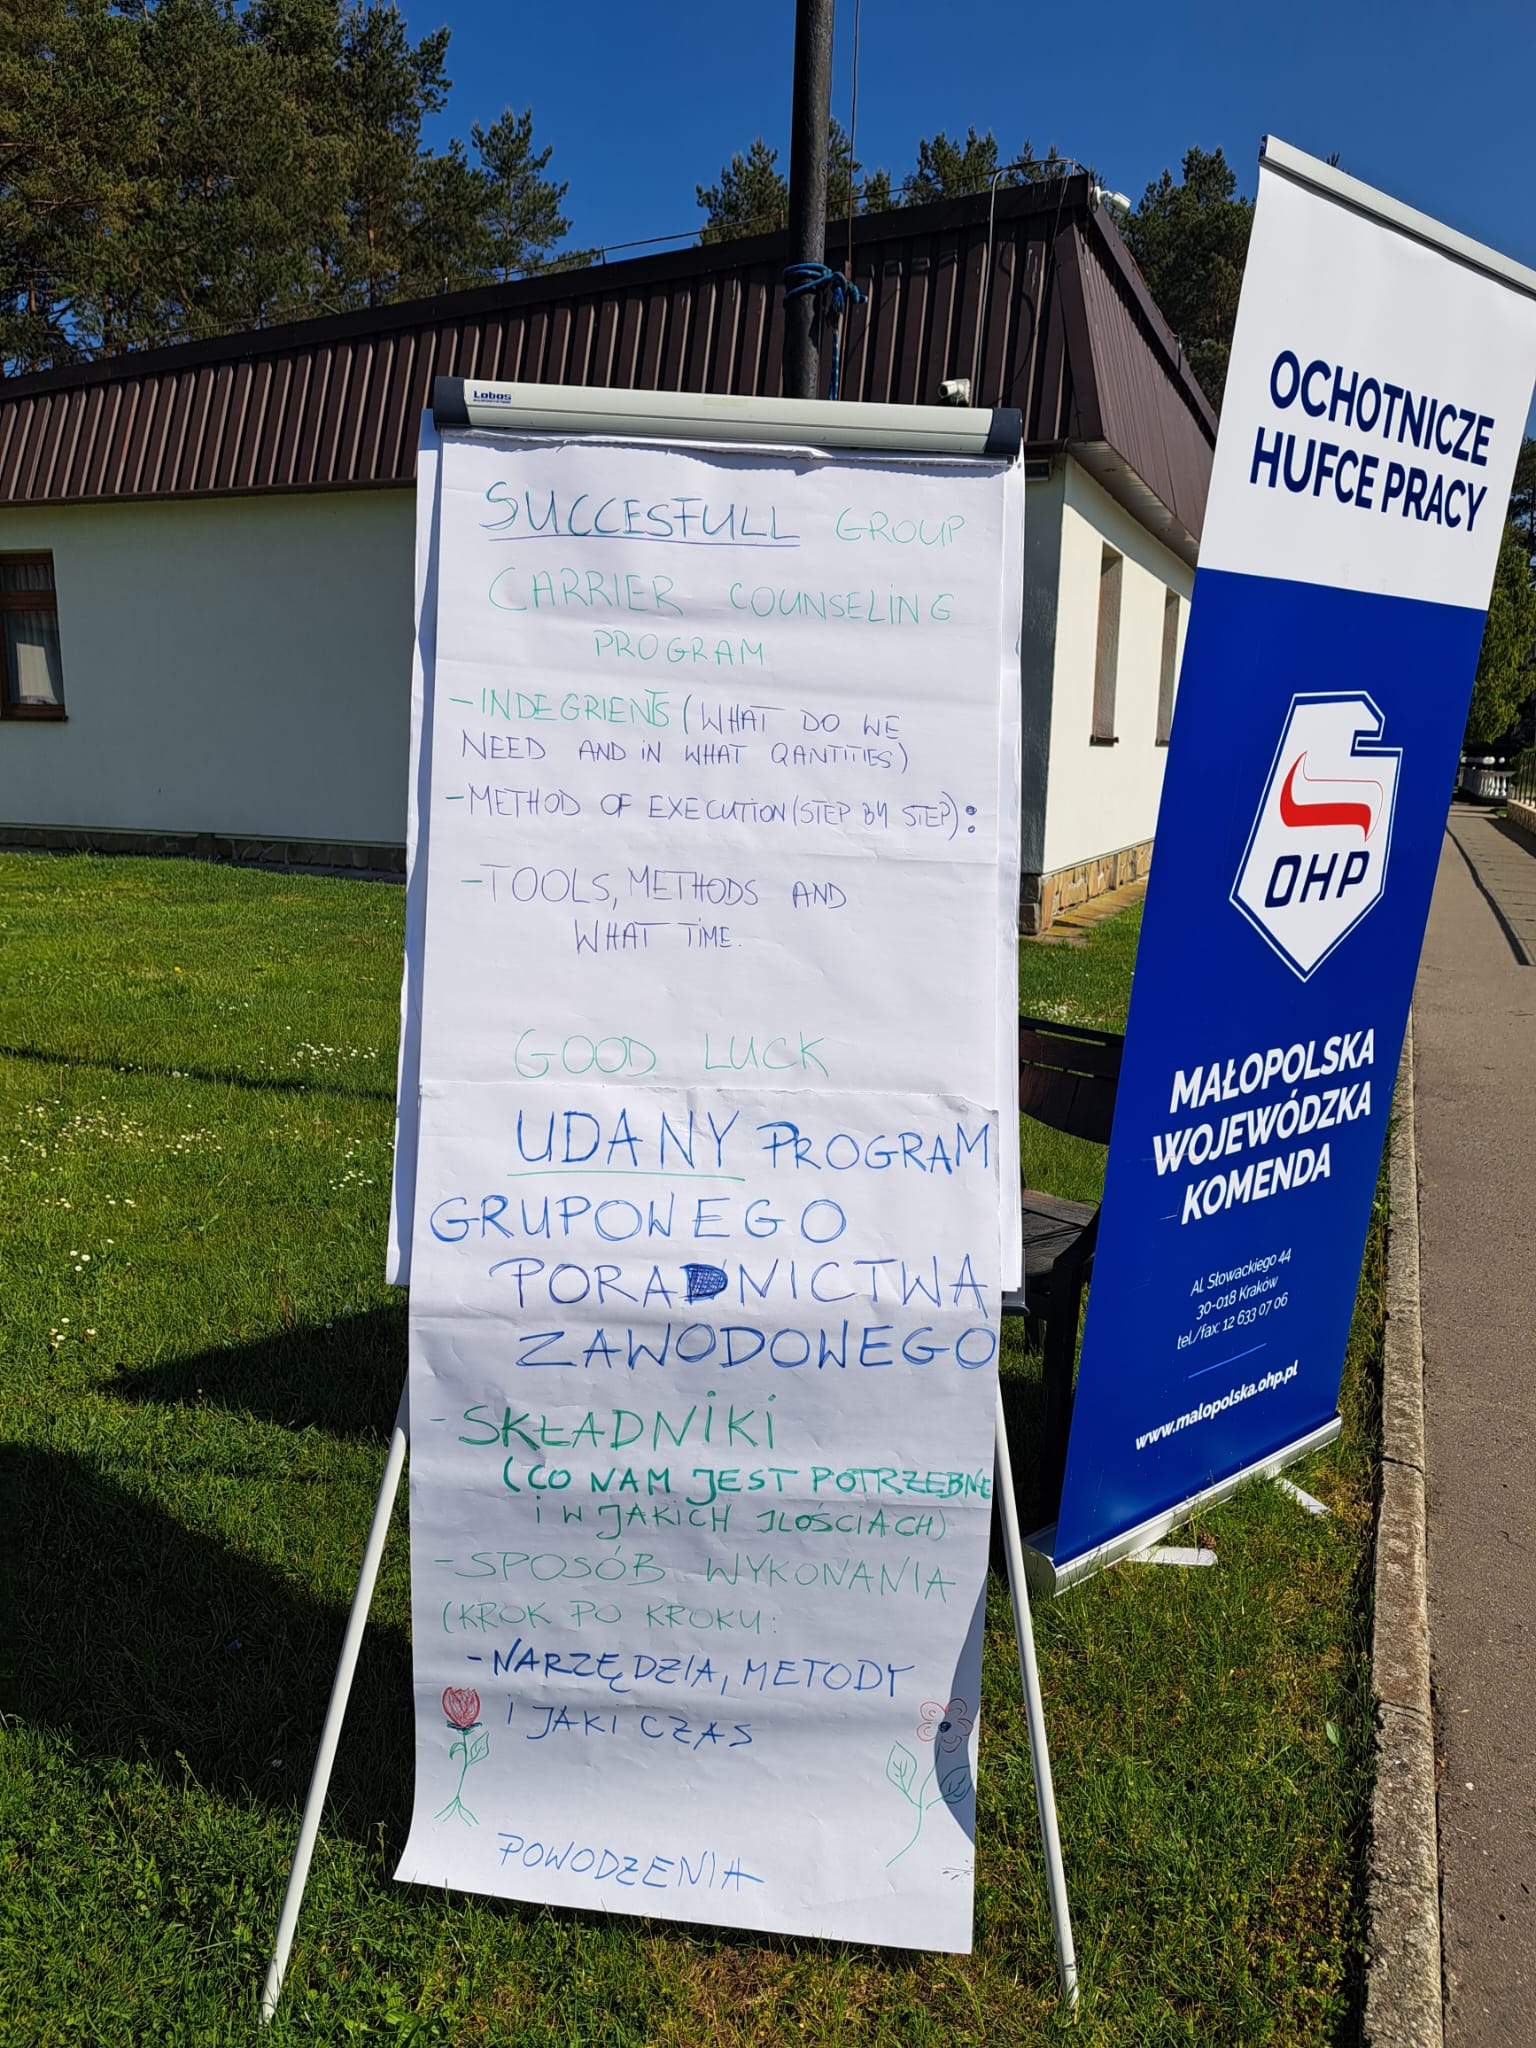 Lobos
SUCCESFULL GROUP
CARRIER COUNSELING
PROGRAM
- INDEGRIENTS (WHAT DO WE
NEED AND IN WHAT QANTITIES)
- METHOD OF EXECUTION (STEP BY STEP):
- TOOLS, METHODS AND
WHAT TIME.
GOOD LUCK
UDANY PROGRAM
GRUPOWEGO
PORADNICTWA
ZAWODOWEGO
- SKŁADNIKI
(CO NAM JEST POTRZEBNE
I W JAKICH ILOŚCIACH)
- SPOSÓB WYKONANIA
(KROK PO KROKU:
- NARZĘDZIA, METODY
I JAKI CZAS
POWODZENIA
OCHOTNICZE
HUFCE PRACY
OHP
MAŁOPOLSKA
WOJEWÓDZKA
KOMENDA
Al. Słowackiego 44
30-018 Kraków
tel./fax: 12 633 07 06
www.malopolska.ohp.pl